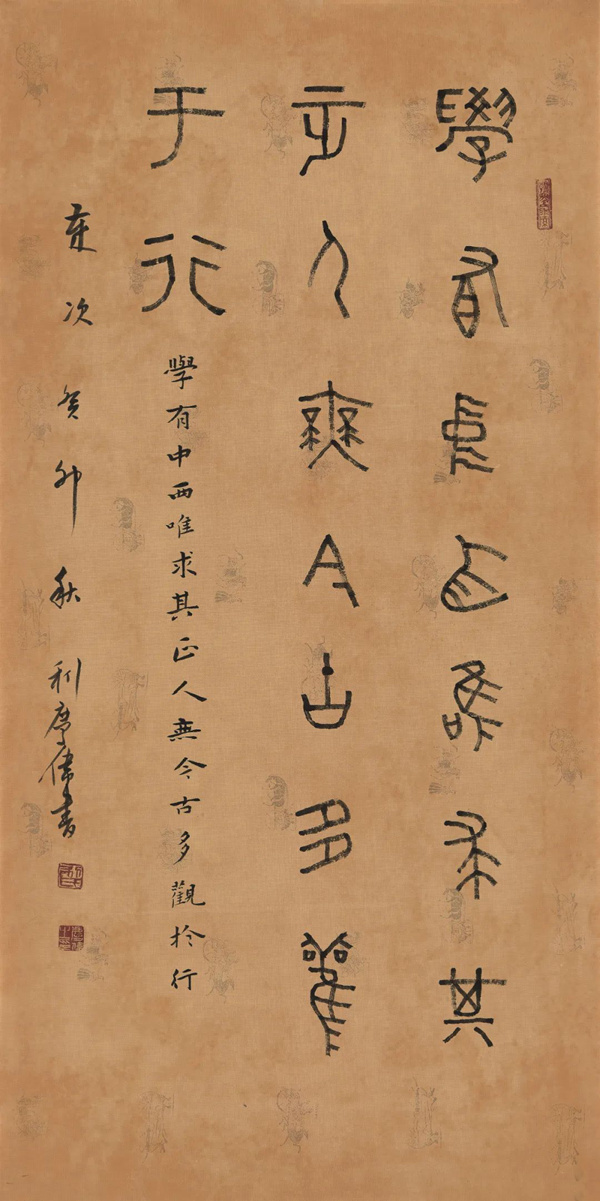 學有中西唯求其
正人無今古多觀
于行
學有中西唯求其正人無今古多觀於行
歲次癸卯秋利書